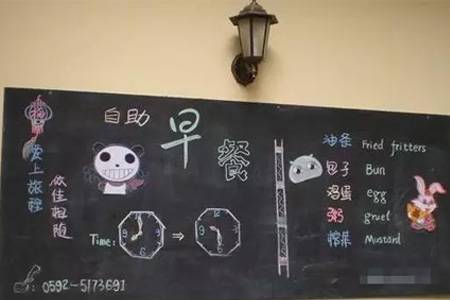 自助早餐
爱上旅程
佳相随
Time: ⇒
油条 Fried fritters
包子 Bun
鸡蛋 egg
粥 gruel
榨菜 Mustard
: 0592-5173691